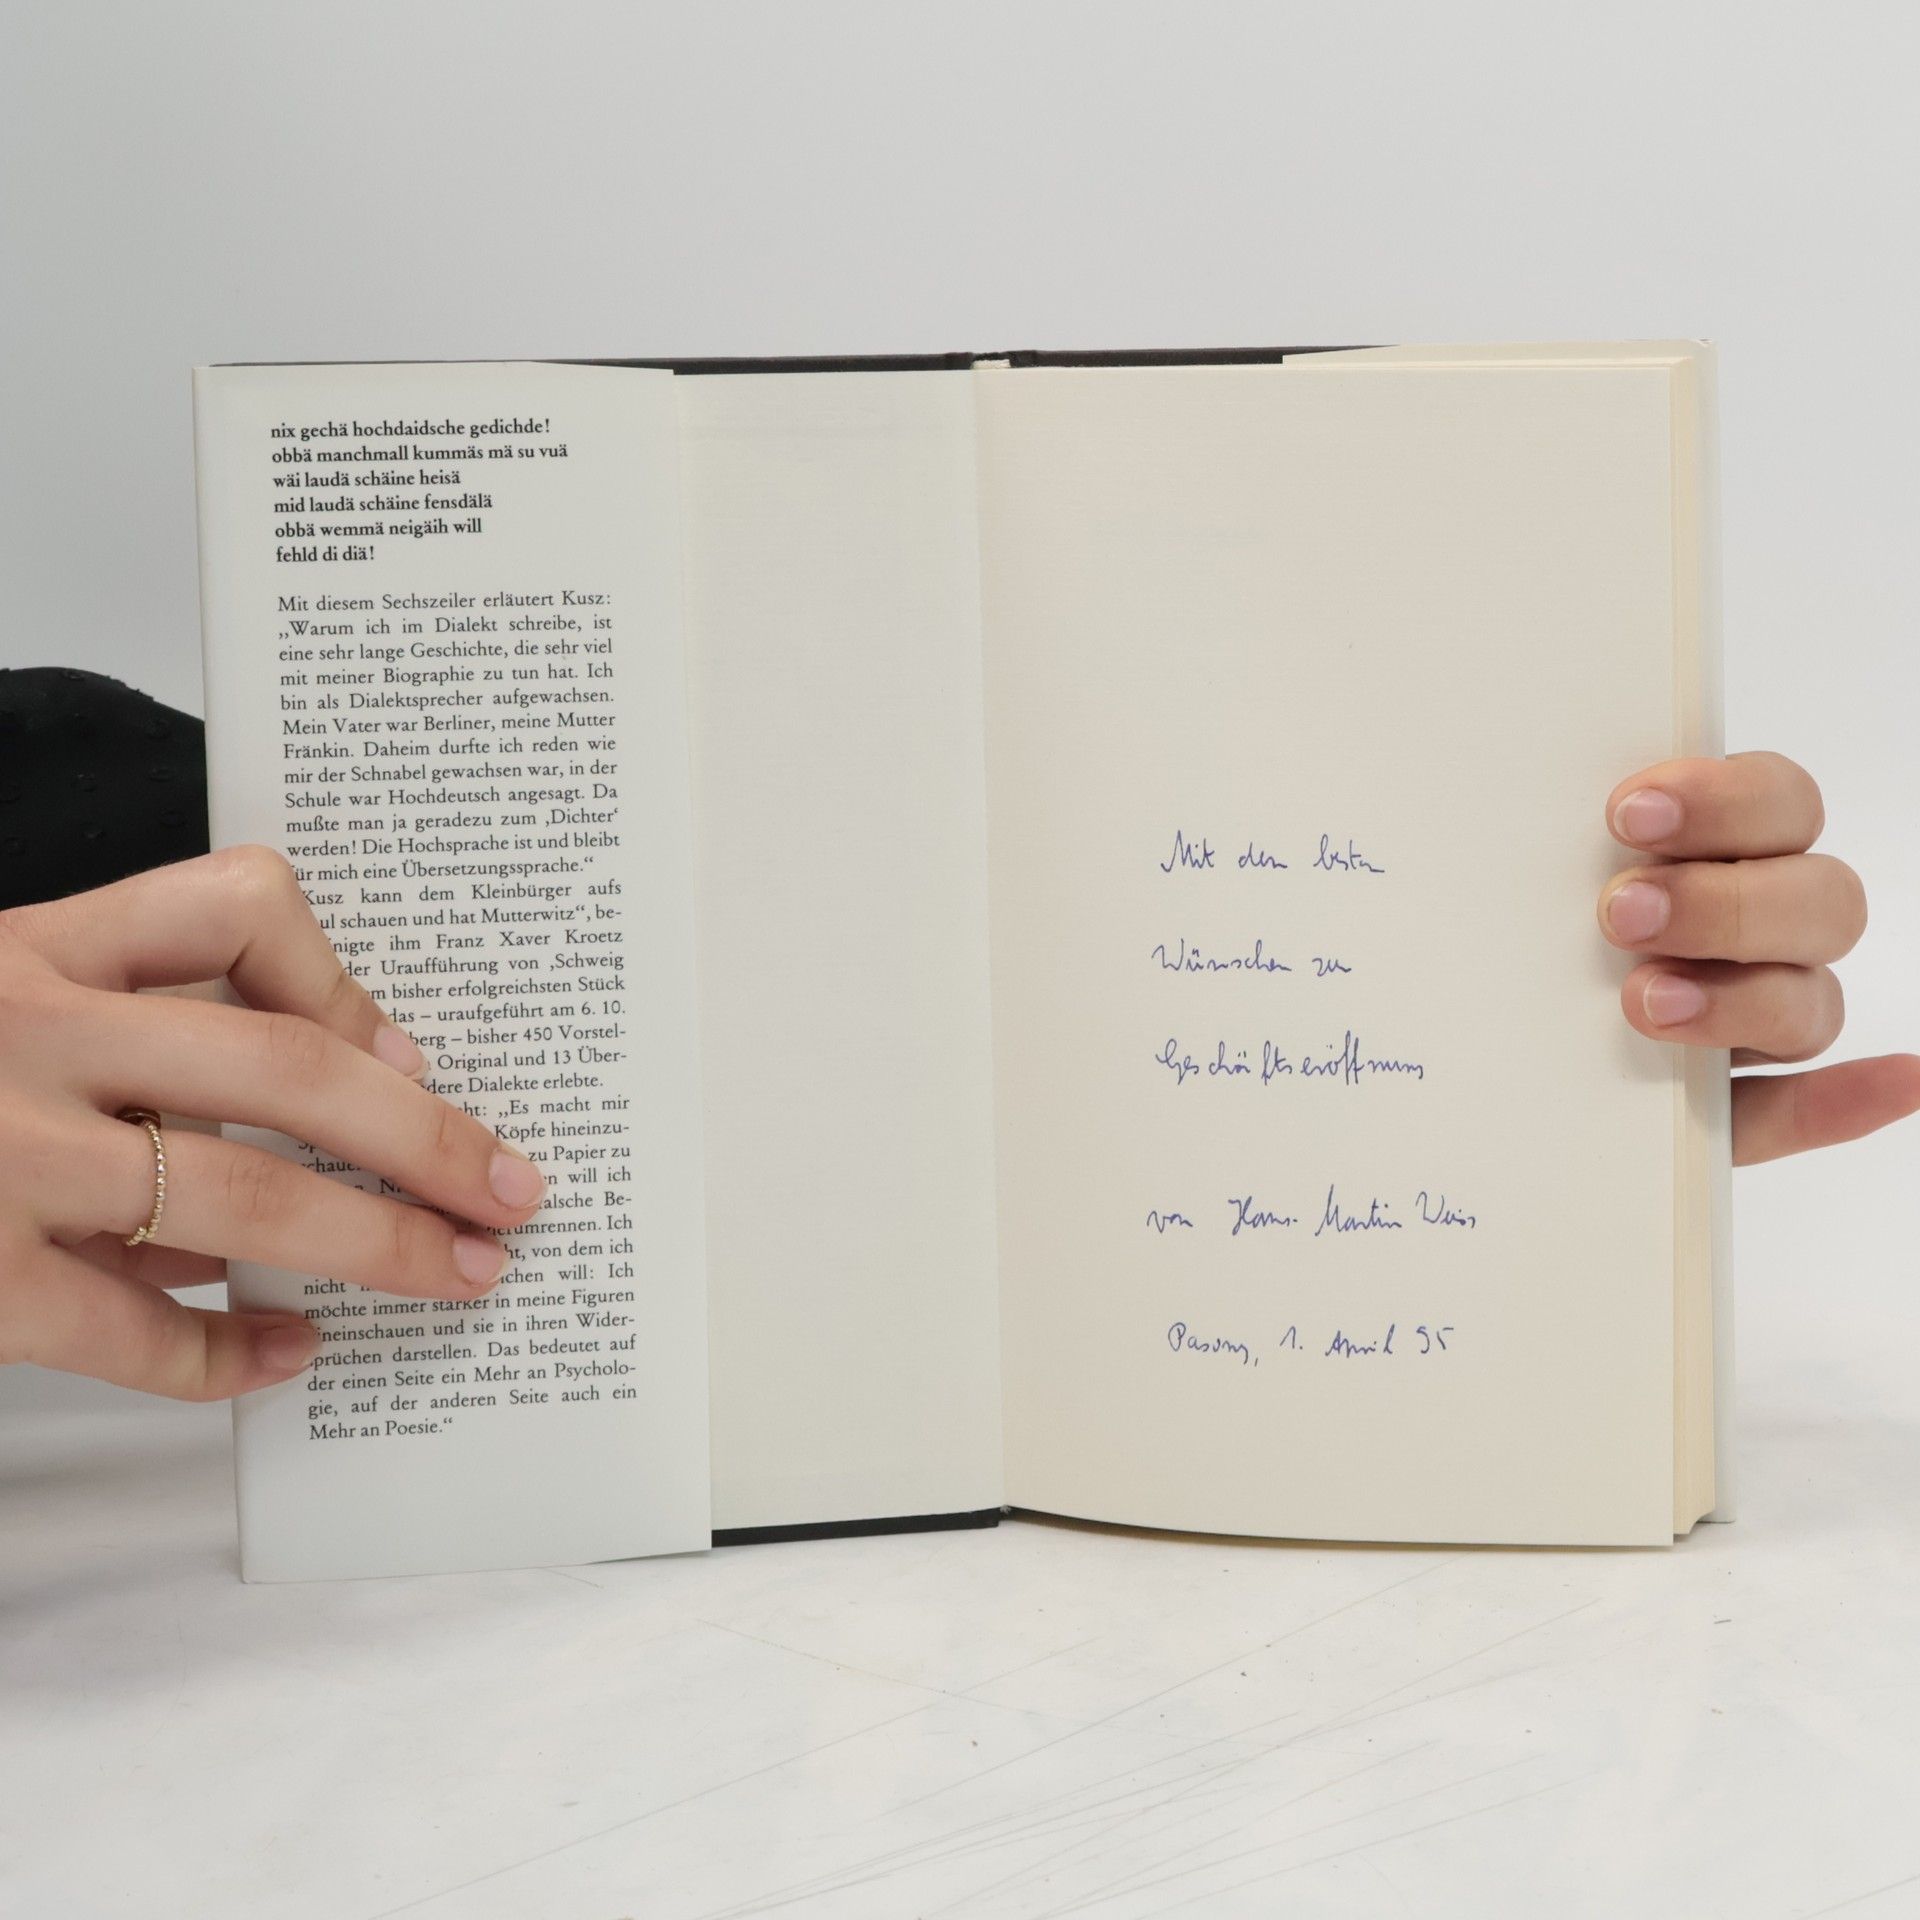 nix gechä hochdaidsche gedichde!
obbä manchmall kummäs mä su vuä
wäi laudä schäine heisä
mid laudä schäine fensdälä
obbä wemmä neigäih will
fehld di diä!
Mit diesem Sechszeiler erläutert Kusz:
„Warum ich im Dialekt schreibe, ist
eine sehr lange Geschichte, die sehr viel
mit meiner Biographie zu tun hat. Ich
bin als Dialektsprecher aufgewachsen.
Mein Vater war Berliner, meine Mutter
Fränkin. Daheim durfte ich reden wie
mir der Schnabel gewachsen war, in der
Schule war Hochdeutsch angesagt. Da
mußte man ja geradezu zum ‚Dichter‘
werden! Die Hochsprache ist und bleibt
für mich eine Übersetzungssprache.“
Kusz kann dem Kleinbürger aufs
schauen und hat Mutterwitz“, be-
ihm Franz Xaver Kroetz
der Uraufführung von ‚Schweig
bisher erfolgreichsten Stück
das – uraufgeführt am 6. 10.
– bisher 450 Vorstel-
Original und 13 Über-
Dialekte erlebte.
„Es macht mir
Köpfe hineinzu-
zu Papier zu
will ich
Be-
Ich
von dem ich
nicht will: Ich
möchte immer stärker in meine Figuren
hineinschauen und sie in ihren Wider-
sprüchen darstellen. Das bedeutet auf
der einen Seite ein Mehr an Psycholo-
gie, auf der anderen Seite auch ein
Mehr an Poesie.“
Mit den besten
Wünschen zur
Geschäftseröffnung
von Hans-Martin Weiss
Pasing, 1. April 95